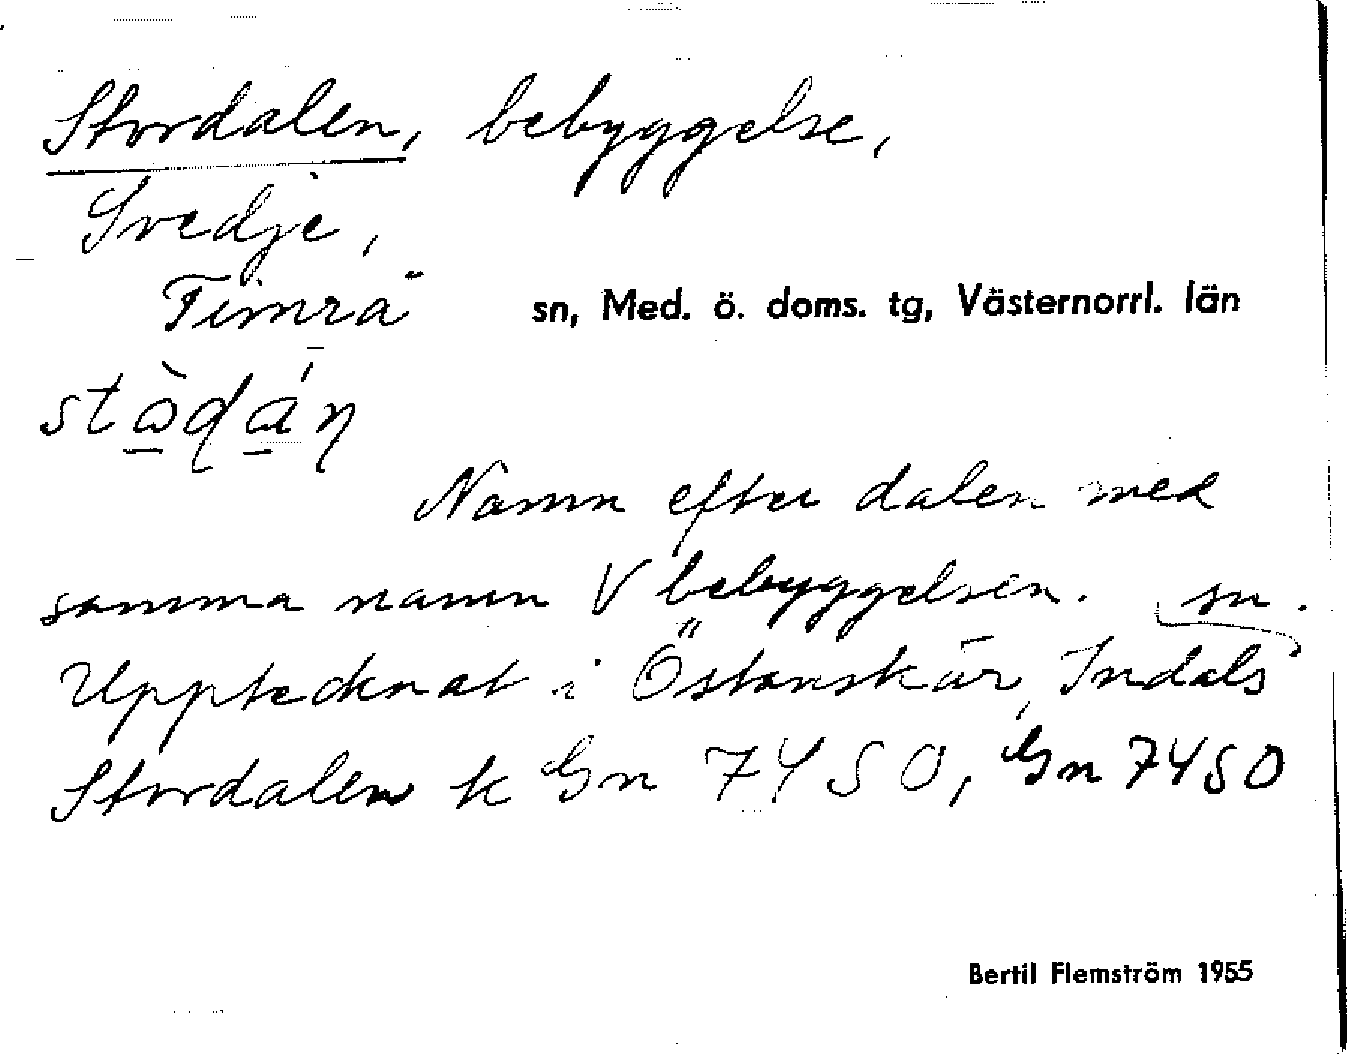 Stordalen, bebyggelse,
Svedje,
Timrå sn, Med. ö. doms. tg, Västernorrl. län
Namn efter dalen med
samma namn V bebyggelsen. sn.
Upptecknat i Östanskär, Indals
Stordalen k Gn 7450, Gn 7450
Bertil Flemström 1955